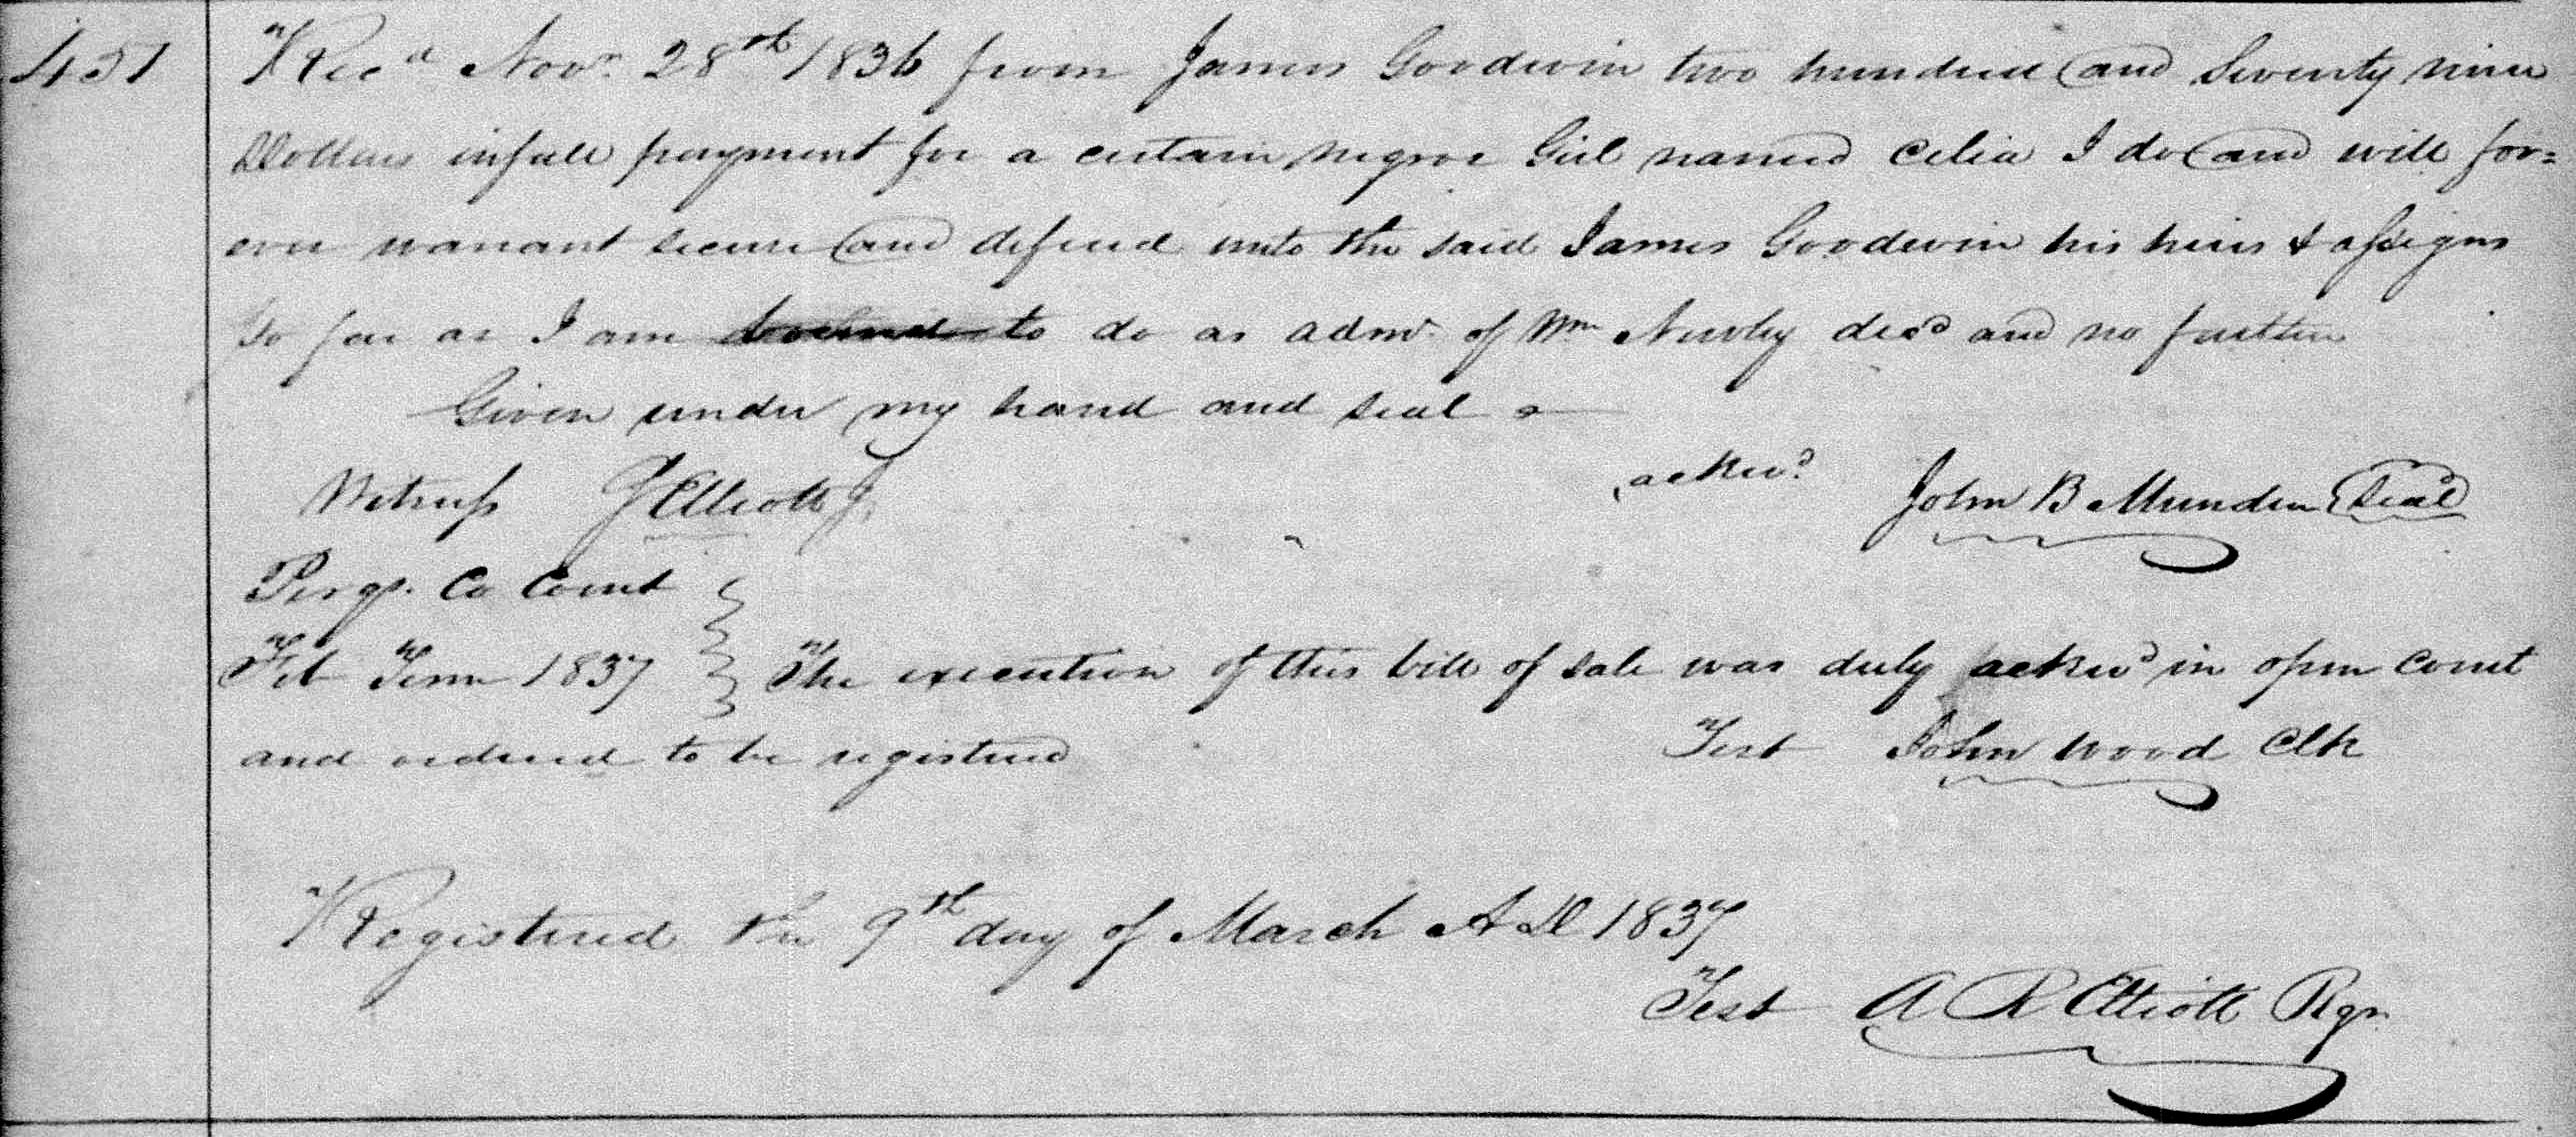 451 Recd Novr 28th 1836 from James Goodwin two hundred and Seventy nine
Dollars in full payment for a certain negroe Girl named Celia I do and will for=
ever warrant secure and defend unto the said James Goodwin his heirs & assigns
so far as I am bound to do as admr of Wm Newby decd and no further
Given under my hand and seal
ackd
Witness J Elliott Jr John B Munden Seal
Perqs. Co Court
Feb Term 1837 The execution of this bill of sale was duly ackd in open Court
and ordered to be registered Test John Wood Clk
Registered the 9th day of March A D 1837
Test A R Elliott Rgr